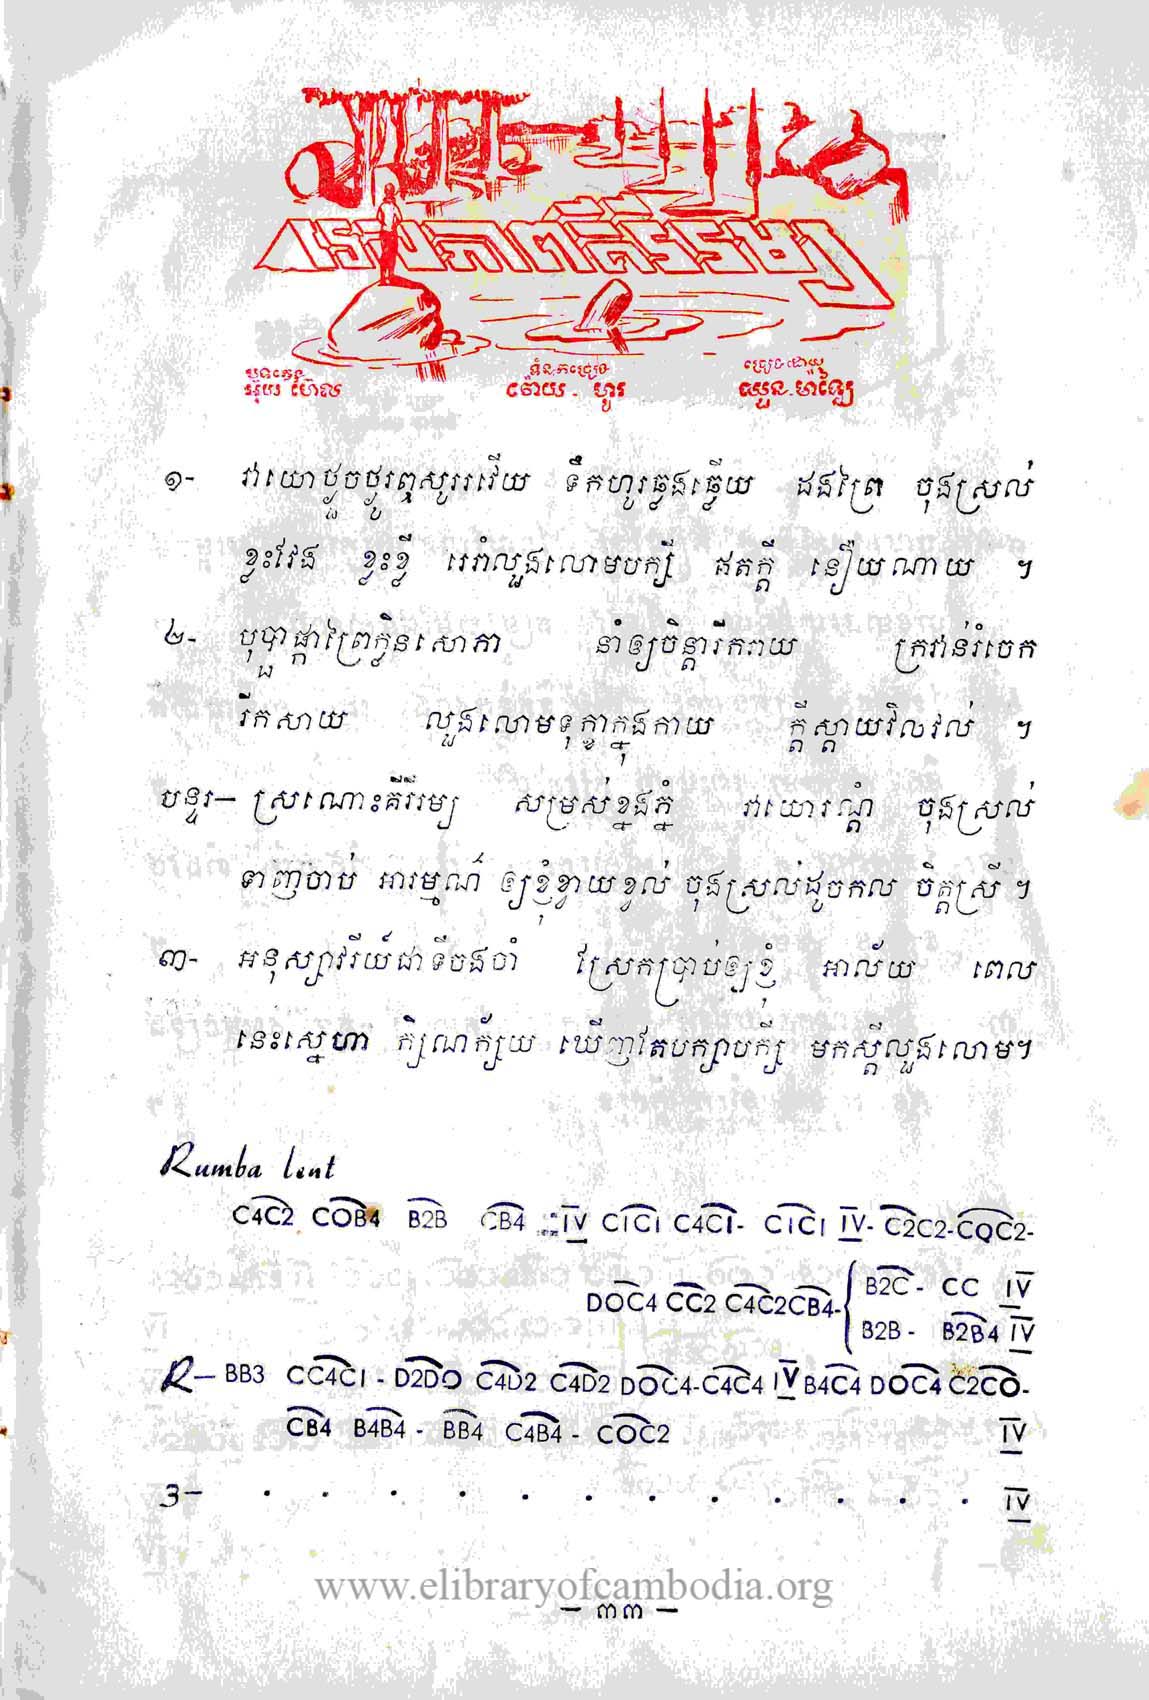 ទេសភាពគិរីរម្យ
បទភ្លេង ទំនុកច្រៀង ច្រៀងដោយ
វ៉ោយ - ហូរ
១- វាយោថ្លួចថ្លូរឮសូររវើយ ទឹកហូរឆ្លងឆ្លើយ ដងព្រៃ ចុងស្រល់
ខ្លះវែង ខ្លះខ្លី រេរាំលួងលោមបក្សី ឥតក្តី នឿយណាយ ។
២- បុប្ផាផ្កាព្រៃក្លិនសោភា នាំឲ្យចិន្តារីករាយ ក្រវាន់រំចេក
រីកសាយ លួងលោមទុក្ខាក្នុងកាយ ក្តីស្តាយវិលវល់ ។
បន្ទរ— ស្រណោះគីរីរម្យ សម្រស់ខ្នងភ្នំ វាយោរណ្តំ ចុងស្រល់
ទាញចាប់ អារម្មណ៍ ឲ្យខ្ញុំខ្វាយខ្វល់ ចុងស្រល់ដូចកល ចិត្តស្រី ។
៣- អនុស្សាវរីយ៍ជាទីចងចាំ ស្រែកប្រាប់ឲ្យខ្ញុំ អាល័យ ពេល
នេះស្នេហា ក្សិណក្ស័យ ឃើញតែបក្សាបក្សី មកស្តីលួងលោម។
Rumba lent
C4C2 COB4 B2B CB4 IV C1C1 C4C1- C1C1 IV- C2C2-COC2-
DOC4 CC2 C4C2CB4- B2C - CC IV
B2B - B2B4 IV
R— BB3 CC4C1 - D2DO C4D2 C4D2 DOC4-C4C4 IV B4C4 DOC4 C2CO-
CB4 B4B4 - BB4 C4B4 - COC2 IV
3— . . . . . . . . . . . . IV
www.elibraryofcambodia.org
— ៣៣ —